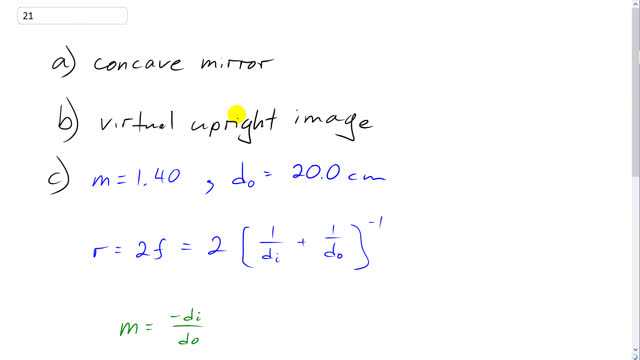 21
a) concave mirror
b) virtual upright image
c) m = 1.40 , do = 20.0 cm
r = 2f = 2 [ 1/di + 1/do ]^-1
m = -di/do